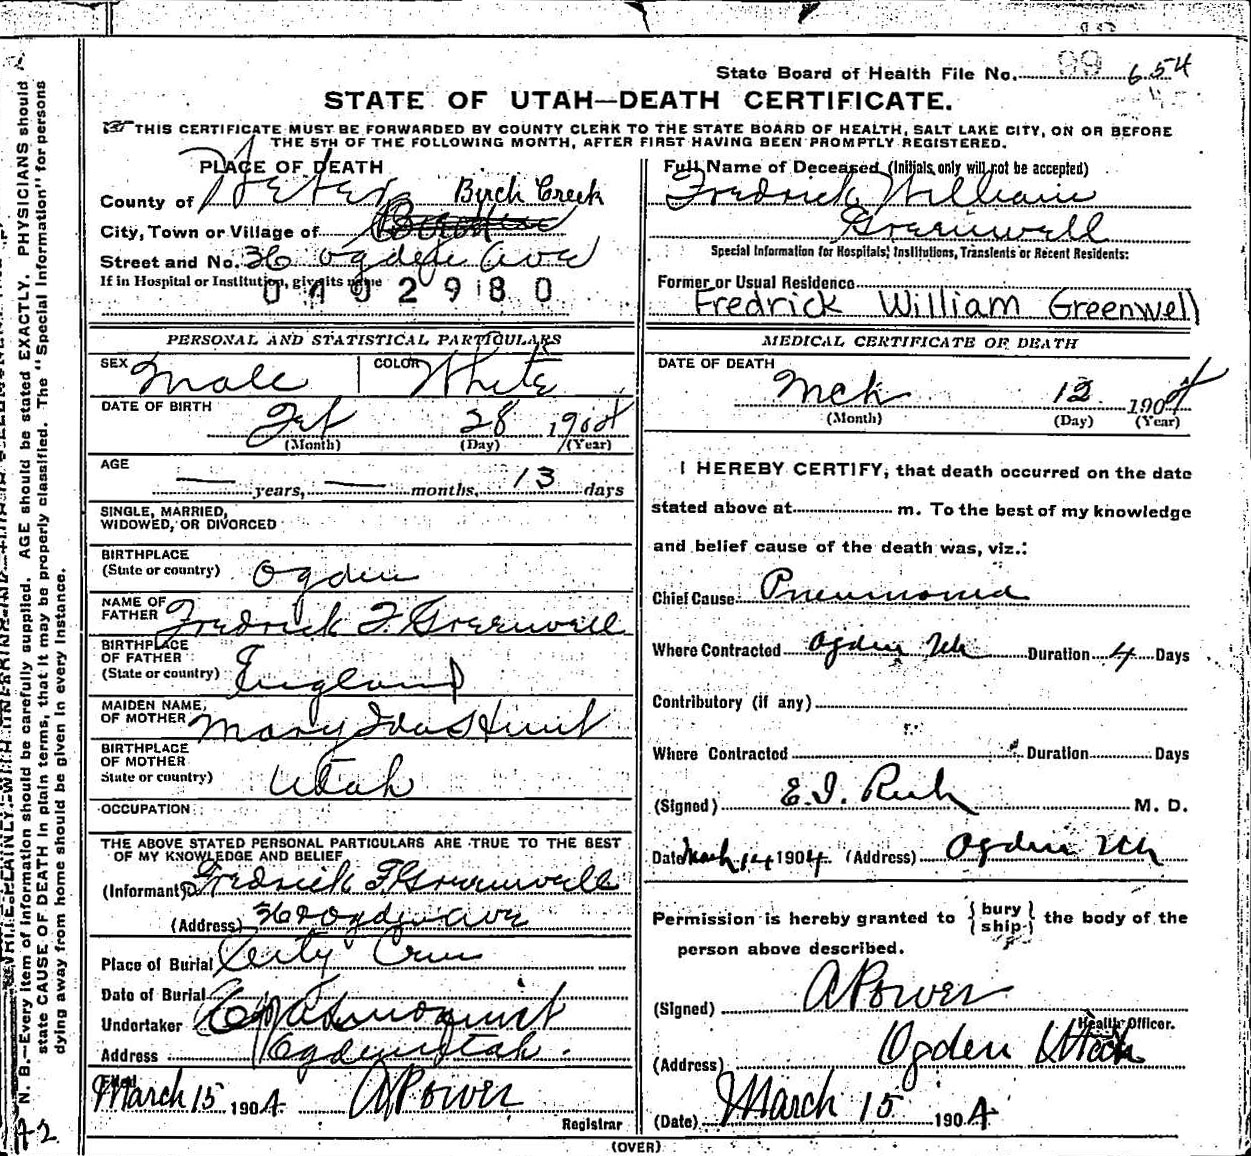 State Board of Health File No. 99 654
STATE OF UTAH—DEATH CERTIFICATE.
THIS CERTIFICATE MUST BE FORWARDED BY COUNTY CLERK TO THE STATE BOARD OF HEALTH, SALT LAKE CITY, ON OR BEFORE
THE 5TH OF THE FOLLOWING MONTH, AFTER FIRST HAVING BEEN PROMPTLY REGISTERED.
PLACE OF DEATH
County of Weber Birch Creek
City, Town or Village of
Street and No. 36 Ogden Ave
If in Hospital or Institution, give its name
0402980
PERSONAL AND STATISTICAL PARTICULARS
SEX Male COLOR White
DATE OF BIRTH Feb 28 1904
(Month) (Day) (Year)
AGE
— years, — months, 13 days
SINGLE, MARRIED,
WIDOWED, OR DIVORCED
BIRTHPLACE
(State or country) Ogden
NAME OF
FATHER Fredrick F. Greenwell
BIRTHPLACE
OF FATHER
(State or country) England
MAIDEN NAME,
OF MOTHER Mary Ida Hunt
BIRTHPLACE
OF MOTHER
State or country) Utah
OCCUPATION
THE ABOVE STATED PERSONAL PARTICULARS ARE TRUE TO THE BEST
OF MY KNOWLEDGE AND BELIEF
(Informant) Fredrick F Greenwell
(Address) Ogden Ave
Place of Burial City Cem
Date of Burial
Undertaker
Address Ogden Utah.
Filed
March 15 1904. A Power
Registrar
Full Name of Deceased (Initials only will not be accepted)
Fredrick William
Greenwell
Special Information for Hospitals, Institutions, Transients or Recent Residents:
Former or Usual Residence
Fredrick William Greenwell
MEDICAL CERTIFICATE OF DEATH
DATE OF DEATH
Mch 12 1904
(Month) (Day) (Year)
I HEREBY CERTIFY, that death occurred on the date
stated above at m. To the best of my knowledge
and belief cause of the death was, viz.:
Chief Cause Pneumonia
Where Contracted Ogden Utah Duration 4 Days
Contributory (if any)
Where Contracted Duration Days
(Signed) E. I. Rich M. D.
Date March 14 1904. (Address) Ogden Utah
Permission is hereby granted to { bury ship } the body of the
person above described.
(Signed) A Power
Health Officer.
(Address) Ogden Utah
(Date) March 15 1904
(OVER)
N. B.—Every item of information should be carefully supplied. AGE should be stated EXACTLY. PHYSICIANS should
state CAUSE OF DEATH in plain terms, that it may be properly classified. The "Special Information" for persons
dying away from home should be given in every instance.